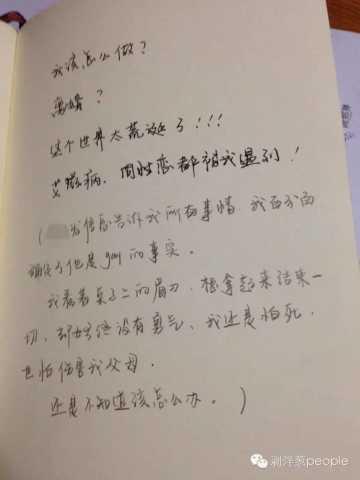 我该怎么做？
离婚？
这个世界太荒诞了！！！
艾滋病、同性恋都被我遇到！
（ 发信息告诉我所有事情，我百分百
确定了他是gay的事实。
我看着桌子上的眉刀，想拿起来结束一
切，却始终没有勇气，我还是怕死，
也怕伤害我父母。
还是不知道该怎么办。）
剥洋葱people